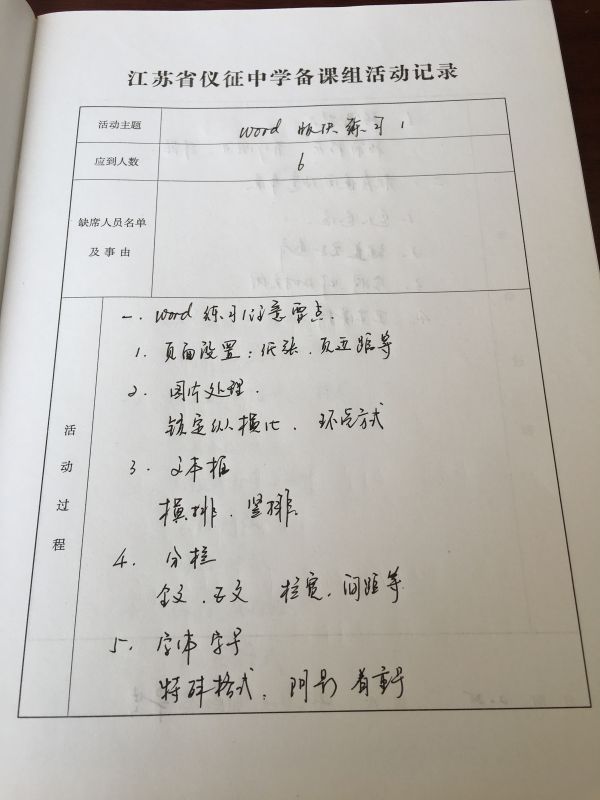 江苏省仪征中学备课组活动记录
活动主题 word 版块练习1
应到人数 6
缺席人员名单
及事由
活动过程
一. word 练习1注意要点:
1. 页面设置:纸张、页边距等
2. 图片处理.
锁定纵横比、环绕方式
3. 文本框
横排、竖排
4. 分栏
全文、正文 栏宽、间距等
5. 字体字号
特殊格式:阴影 着重号